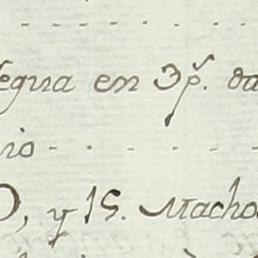 egua en 3p.^s da
nio - - - -
O, y 15. Macho